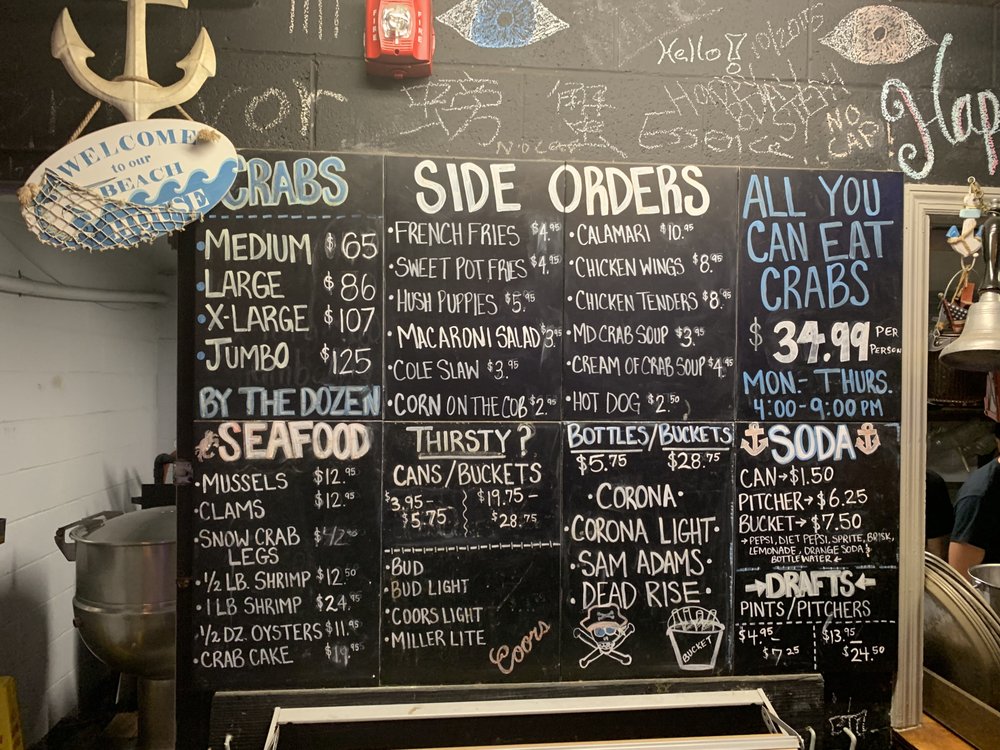 Hello!
10/2015
NO CAP
Hap
FIRE
FIRE
WELCOME
to our
BEACH
HOUSE
CRABS
• MEDIUM $65
• LARGE $86
• X-LARGE $107
• JUMBO $125
BY THE DOZEN
SIDE ORDERS
• FRENCH FRIES $4.95
• SWEET POT FRIES $4.95
• HUSH PUPPIES $5.95
• MACARONI SALAD $3.95
• COLE SLAW $3.95
• CORN ON THE COB $2.95
• CALAMARI $10.95
• CHICKEN WINGS $8.95
• CHICKEN TENDERS $8.95
• MD CRAB SOUP $3.95
• CREAM OF CRAB SOUP $4.95
• HOT DOG $2.50
ALL YOU
CAN EAT
CRABS
$34.99 PER PERSON
MON.-THURS.
4:00-9:00 PM
SEAFOOD
• MUSSELS $12.95
• CLAMS $12.95
• SNOW CRAB
LEGS
• 1/2 LB. SHRIMP $12.50
• 1 LB SHRIMP $24.95
• 1/2 DZ. OYSTERS $11.95
• CRAB CAKE $19.95
THIRSTY?
CANS/BUCKETS
$3.95-
$5.75
$19.75-
$28.75
• BUD
BUD LIGHT
• COORS LIGHT
• MILLER LITE
Coors
BOTTLES/BUCKETS
$5.75 $28.75
• CORONA •
• CORONA LIGHT •
• SAM ADAMS •
• DEAD RISE •
BUCKET
SODA
CAN → $1.50
PITCHER → $6.25
BUCKET → $7.50
→ PEPSI, DIET PEPSI, SPRITE, BRISK,
LEMONADE, ORANGE SODA &
BOTTLE WATER ←
→ DRAFTS ←
PINTS/PITCHERS
$4.95-
$7.25
$13.95-
$24.50